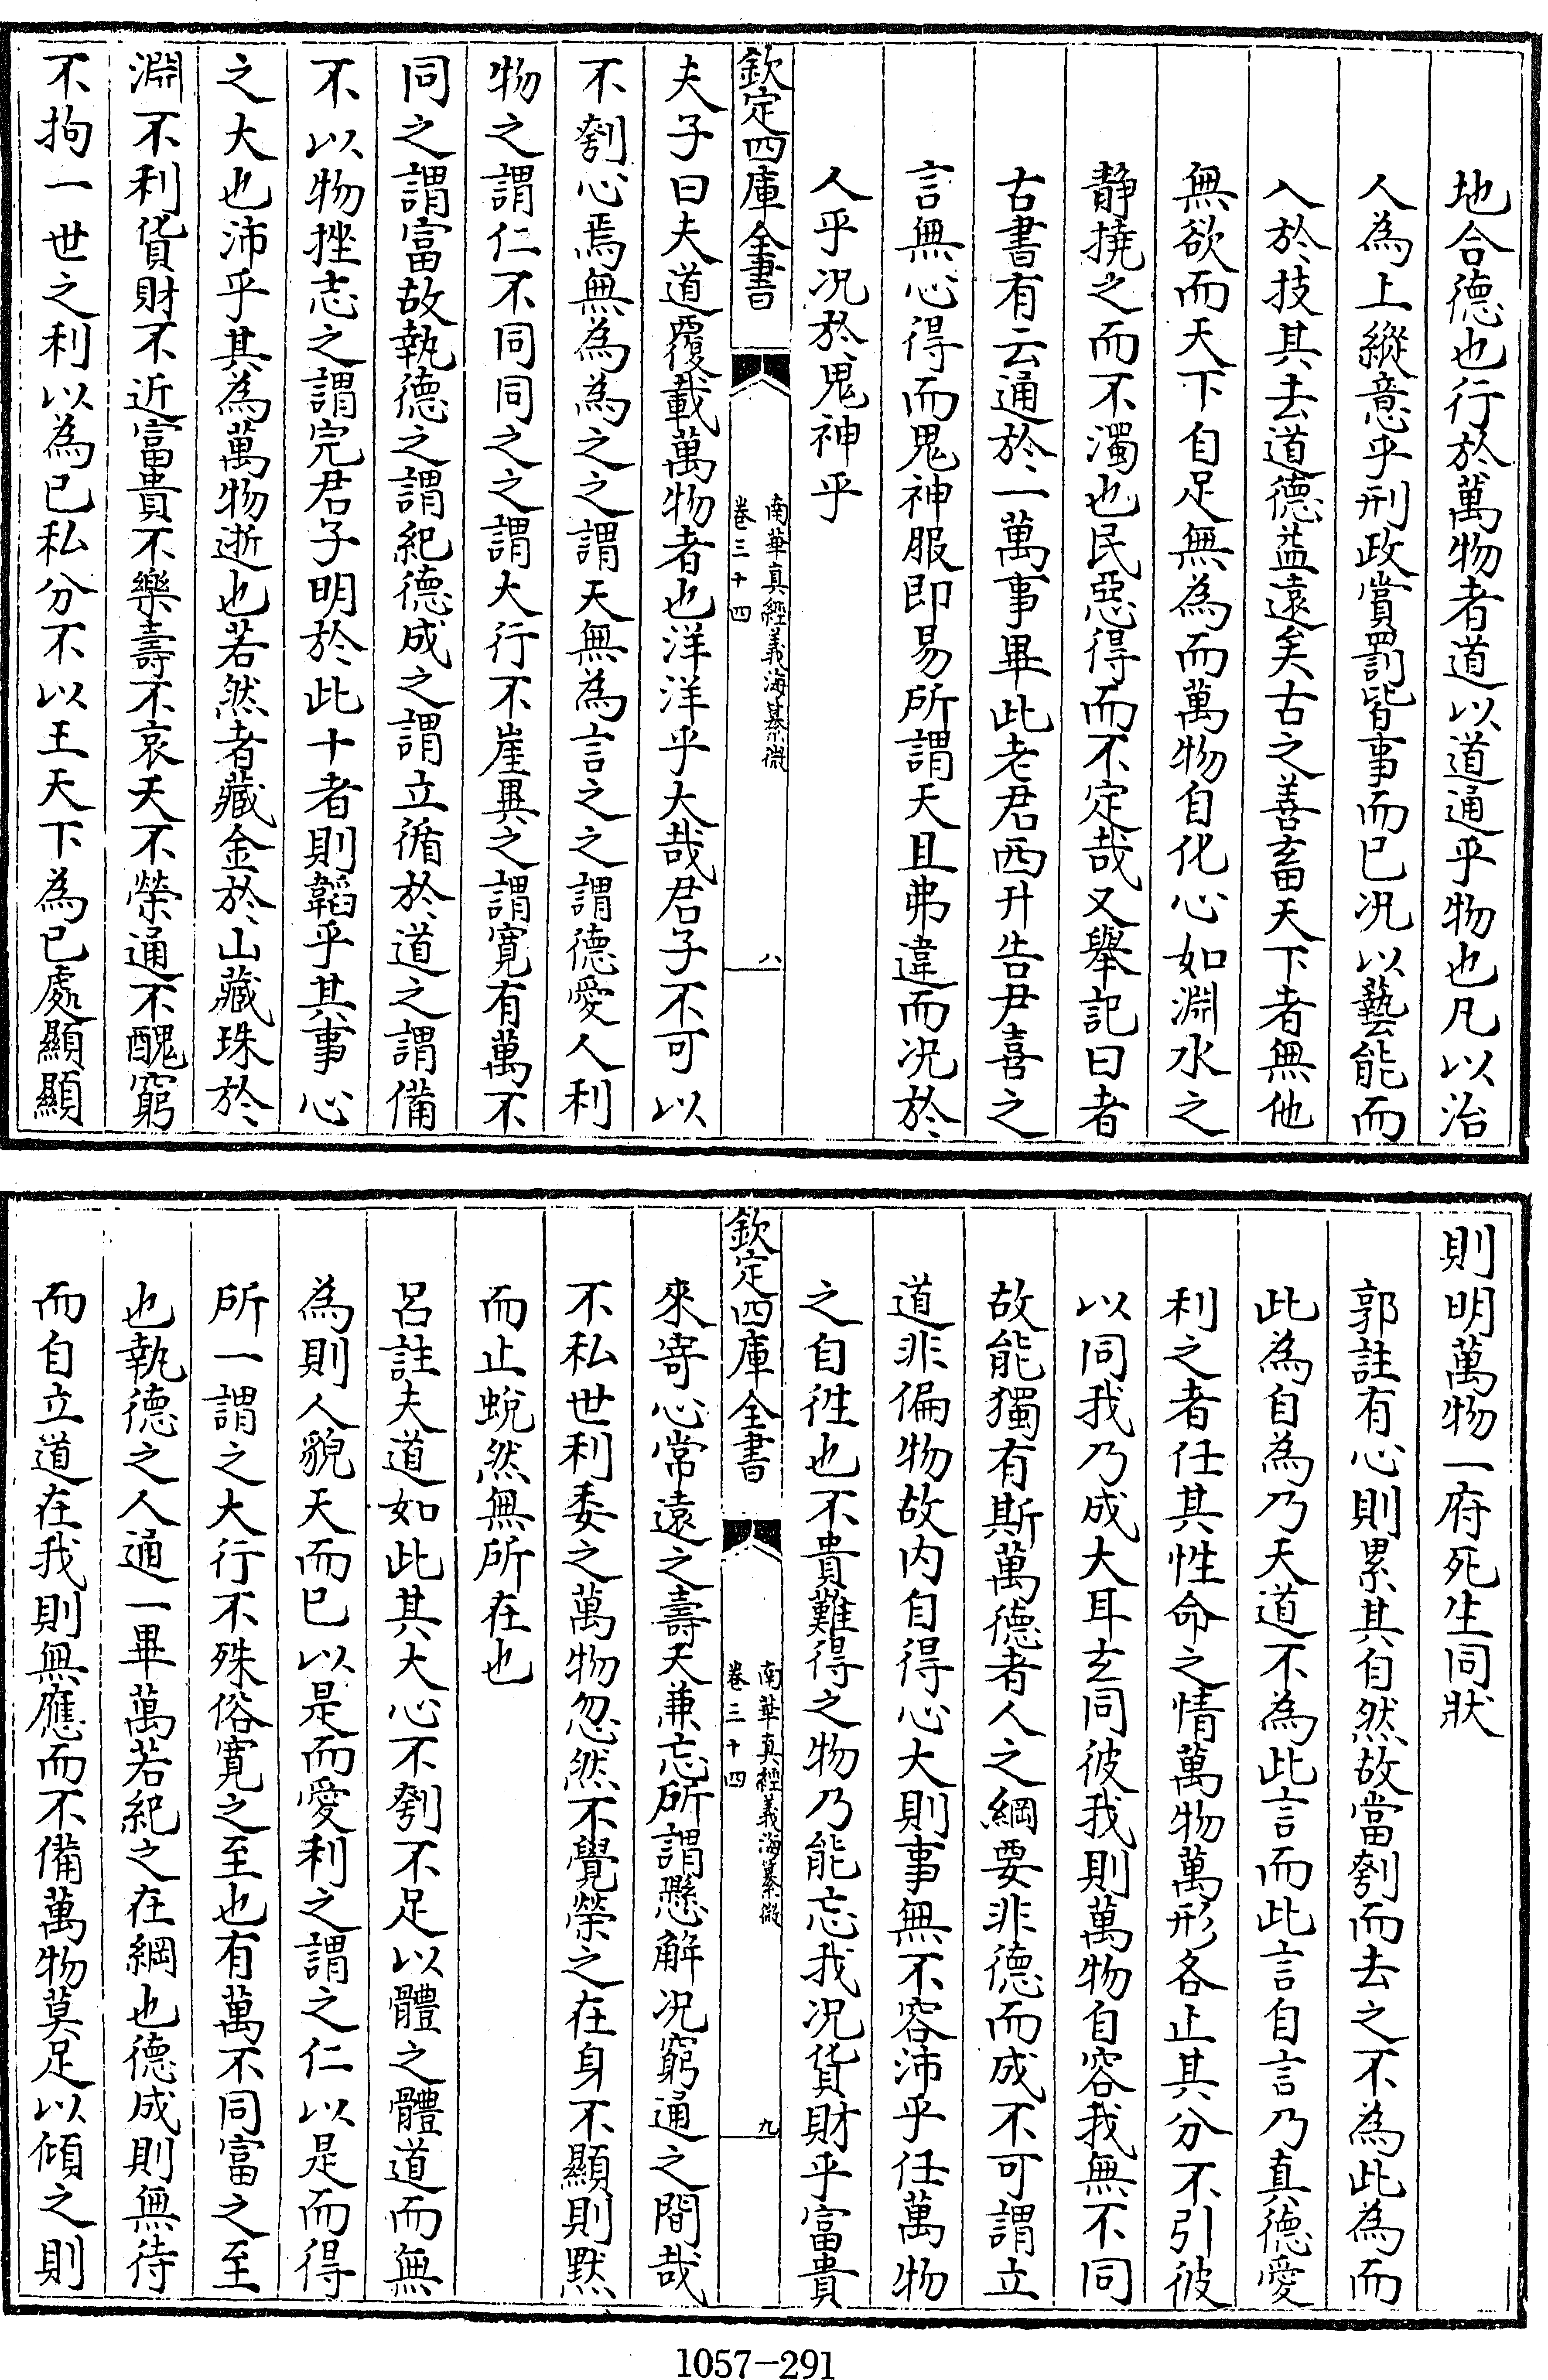 地合德也行於萬物者道以道通乎物也凡以治
人為上縱意乎刑政賞罰皆事而已况以藝能而
入於技其去道德益遠矣古之善畜天下者無他
無欲而天下自足無為而萬物自化心如淵水之
静撓之而不濁也民惡得而不定哉又舉記曰者
古書有云通於一萬事畢此老君西升告尹喜之
言無心得而鬼神服即易所謂天且弗違而况於
人乎况於鬼神乎
欽定四庫全書
南華真經義海纂微
卷三十四
八
夫子曰夫道覆載萬物者也洋洋乎大哉君子不可以
不刳心焉無為為之之謂天無為言之之謂德愛人利
物之謂仁不同同之之謂大行不崖異之謂寛有萬不
同之謂富故執德之謂紀德成之謂立循於道之謂備
不以物挫志之謂完君子明於此十者則韜乎其事心
之大也沛乎其為萬物逝也若然者藏金於山藏珠於
淵不利貨財不近富貴不樂壽不哀夭不榮通不醜窮
不拘一世之利以為已私分不以王天下為已處顯顯
則明萬物一府死生同狀
郭註有心則累其自然故當刳而去之不為此為而
此為自為乃天道不為此言而此言自言乃真德愛
利之者任其性命之情萬物萬形各止其分不引彼
以同我乃成大耳玄同彼我則萬物自容我無不同
故能獨有斯萬德者人之綱要非德而成不可謂立
道非偏物故内自得心大則事無不容沛乎任萬物
之自徃也不貴難得之物乃能忘我况貨財乎富貴
欽定四庫全書
南華真經義海纂微
卷三十四
九
來寄心常遠之壽夭兼忘所謂懸解况窮通之間哉
不私世利委之萬物忽然不覺榮之在身不顯則黙
而止蛻然無所在也
呂註夫道如此其大心不刳不足以體之體道而無
為則人貌天而已以是而愛利之謂之仁以是而得
所一謂之大行不殊俗寛之至也有萬不同富之至
也執德之人通一畢萬若紀之在綱也德成則無待
而自立道在我則無應而不備萬物莫足以傾之則
1057-291